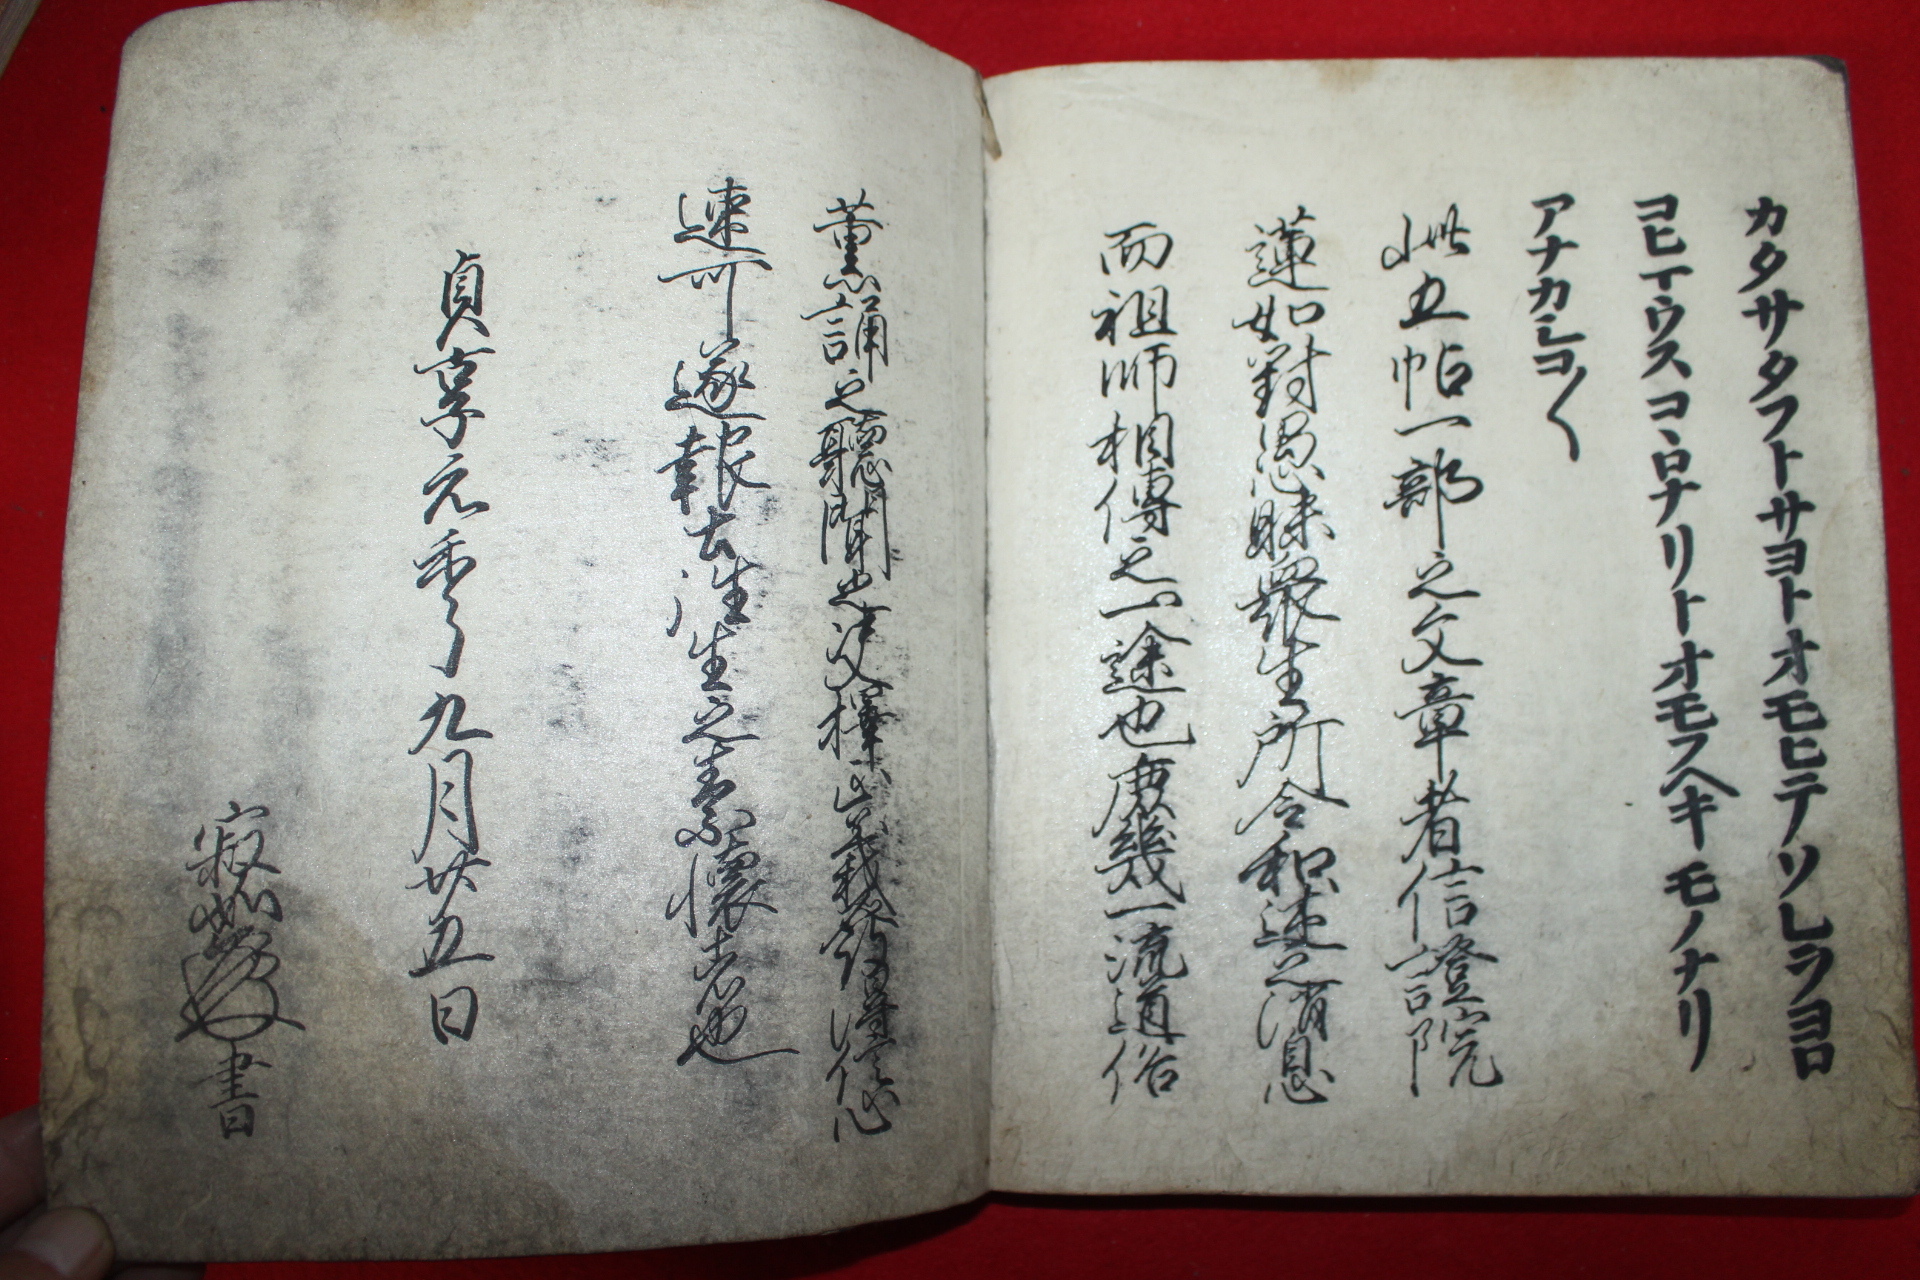 カタサタフトサヨトオモヒテソレヲヨロ
コヒマウスコヽロナリトオモフヘキモノナリ
アナカシコ〱
此五帖一部之文章者信證院
蓮如對愚昧衆生所令和述之消息
而祖師相傳之一途也庶幾一流道俗
薫誦之聽聞之決擇正義發得信心
速可遂報土往生之素懷者也
貞享元季九月廿五日
寂如 書